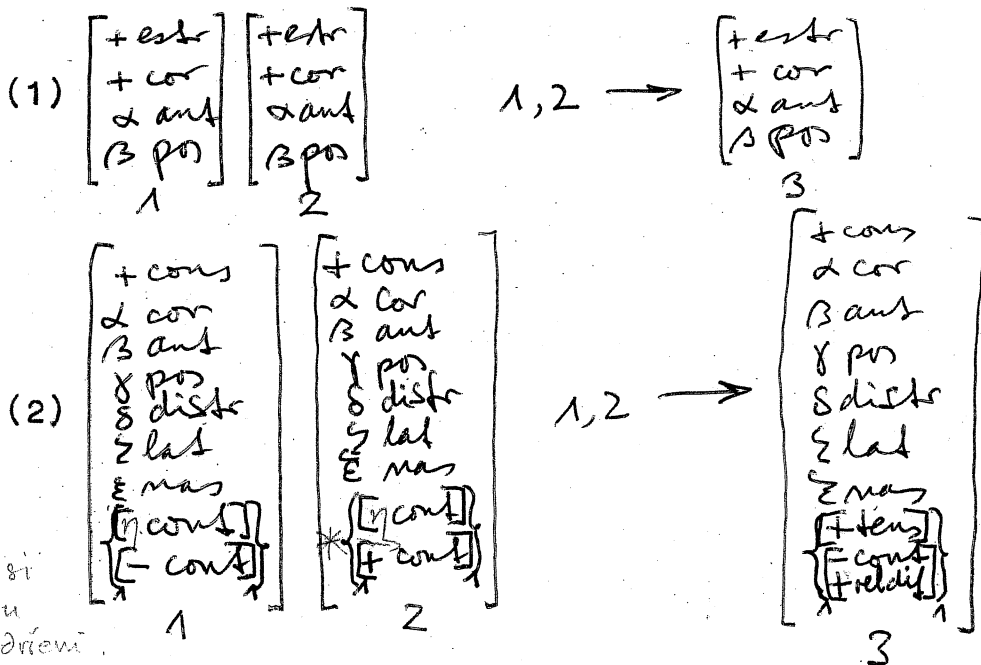 (1) [+estr +cor α ant β pos] 1 [+estr +cor α ant β pos] 2 1,2 → [+estr +cor α ant β pos] 3
(2) [+cons α cor β ant γ pos δ distr ξ lat ξ nas {[η cont] [- cont]}] 1 [+cons α cor β ant γ pos δ distr ξ lat ξ nas *{[η cont] [+ cont]}] 2 1,2 → [+cons α cor β ant γ pos δ distr ξ lat ξ nas {[+tens] [-cont +reldif]}] 3
si
u